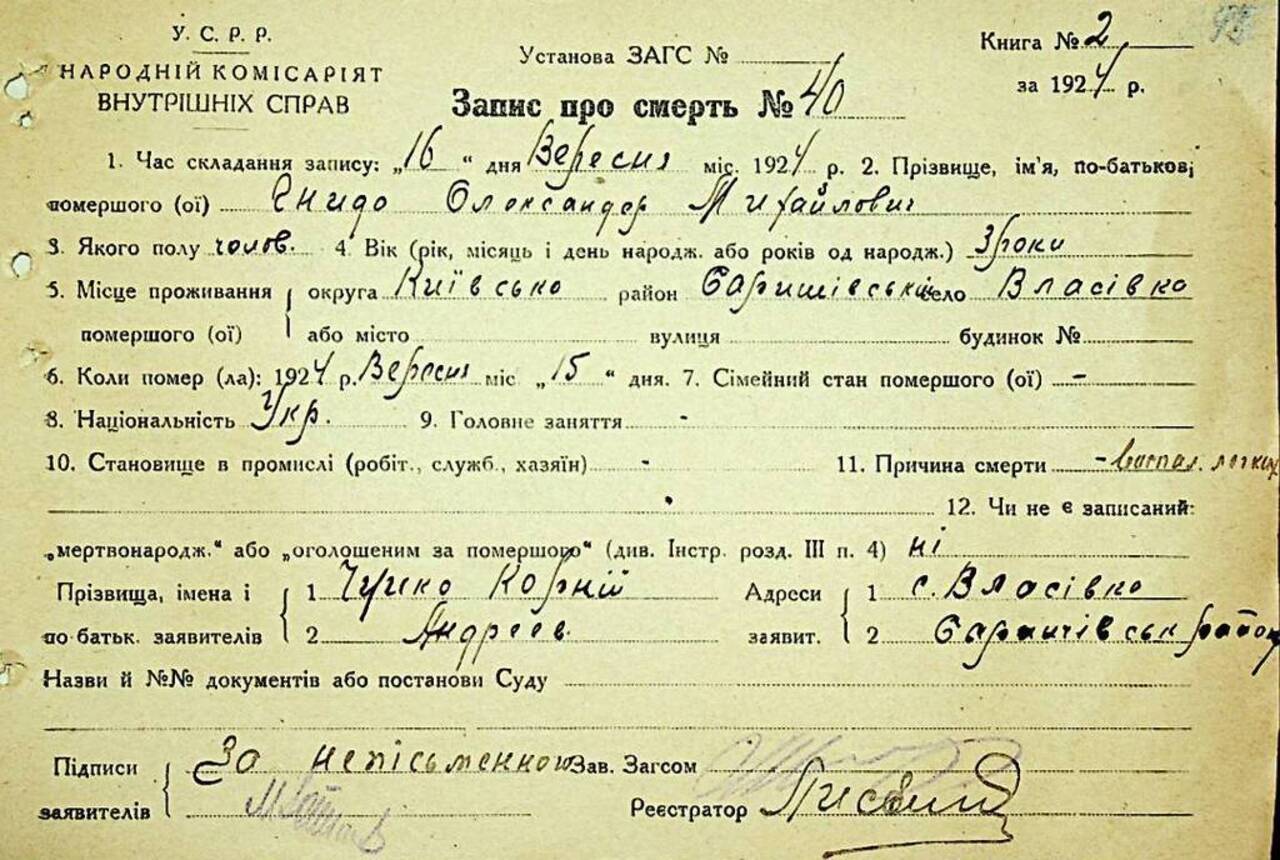 У. С. Р. Р.
НАРОДНІЙ КОМІСАРІЯТ
ВНУТРІШНІХ СПРАВ
Установа ЗАГС №
Книга № 2
за 1924 р.
Запис про смерть № 40
1. Час складання запису: „16“ дня Вересня міс. 1924 р. 2. Прізвище, ім'я, по-батькові
помершого (ої) Олександер Михайлович
3. Якого полу чолов. 4. Вік (рік, місяць і день народж. або років од народж.) 3 роки
5. Місце проживання округа Київсько район село Власівка
помершого (ої) або місто вулиця будинок №
6. Коли помер (ла): 1924 р. Вересня міс „15“ дня. 7. Сімейний стан помершого (ої) -
8. Національність Укр. 9. Головне заняття -
10. Становище в промислі (робіт., служб., хазяїн) - 11. Причина смерти - воспал. легких
12. Чи не є записаний:
„мертвонародж.“ або „оголошеним за помершого“ (див. Інстр. розд. III п. 4) ні
Прізвища, імена і 1 Корній Адреси 1 с. Власівка
по батьк. заявителів 2 Андреев. заявит. 2 район
Назви й №№ документів або постанови Суду
Підписи За непісьменного Зав. Загсом
заявителів Реєстратор